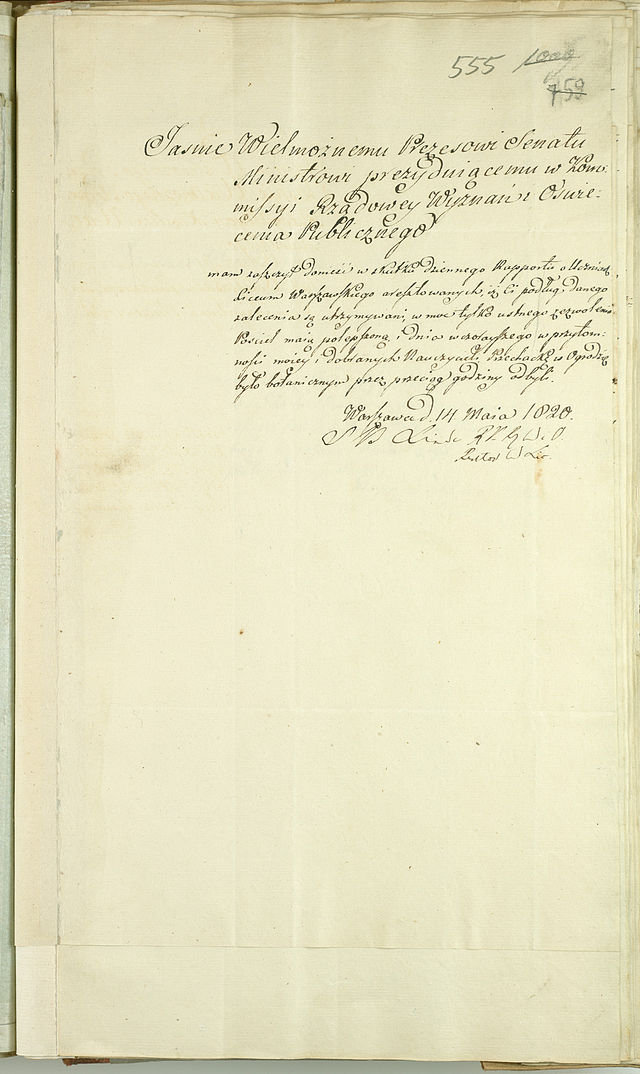 555 1009
759
Jasnie Wielmożnemu Prezesowi Senatu
Ministrowi prezyduiącemu w Kom-
missyi Rządowey Wyznań i Oświe-
cenia Publicznego
mam zaszczyt donieść w skutku dziennego Rapportu o Uczniach
Liceum Warszawskiego aresztowanych, iż Ci podług danego
zalecenia są utrzymywani, w moc tylko ustnego zezwolenia
Pościel maią polepszoną, i dnia wczorayszego w przytom-
ności moiey i dobranych Nauczycieli Przechadzkę w Ogrodzie
było botanicznym przez przeciąg godziny odbyli.
Warszawa d. 14 Maia 1820.
S B Linde
Rektor W Lic.